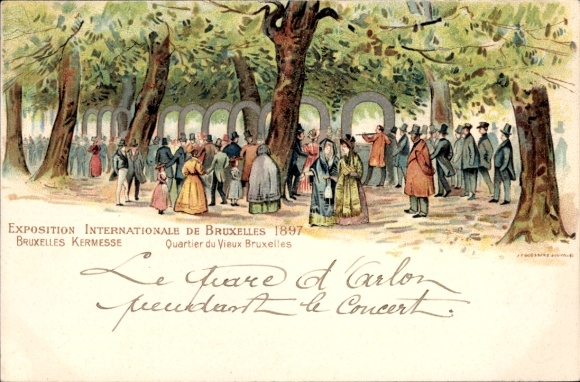 EXPOSITION INTERNATIONALE DE BRUXELLES 1897
BRUXELLES KERMESSE Quartier du Vieux Bruxelles
Le d'Arlon
pendant le Concert.